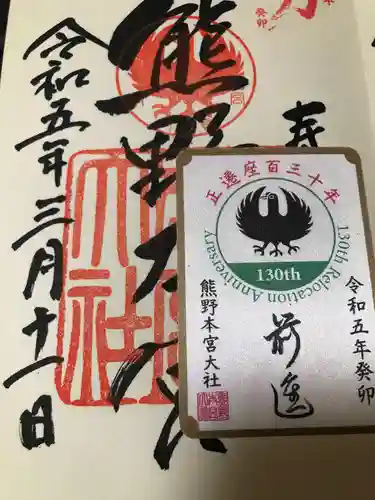 奉
癸卯
熊野大
大社
宮
令和五年三月十一日
正遷座百三十年
130th Relocation Anniversary
130th
令和五年癸卯
前進
熊野本宮大社